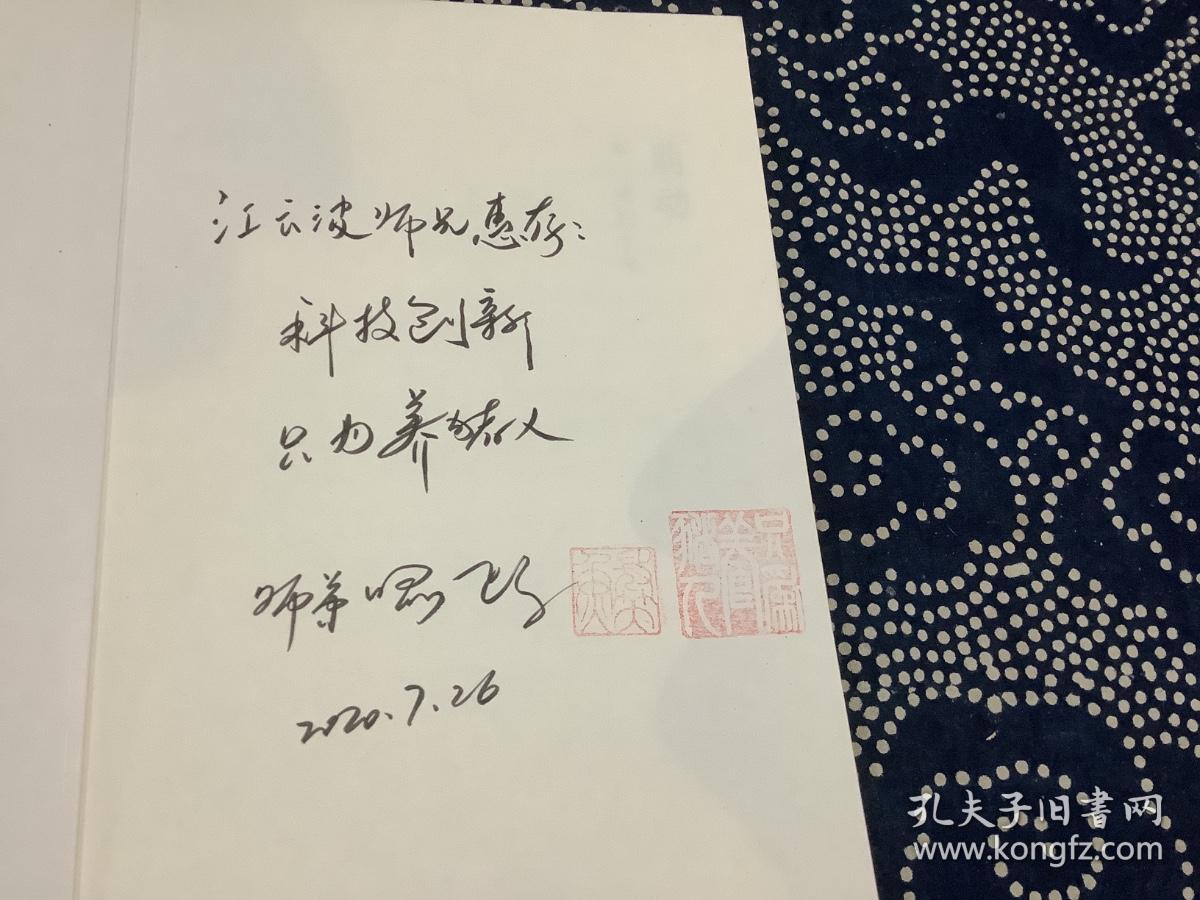 江云波师兄惠存:
科技创新
只为养猪人
师弟
2020.7.26
孔夫子旧書网
www.kongfz.com